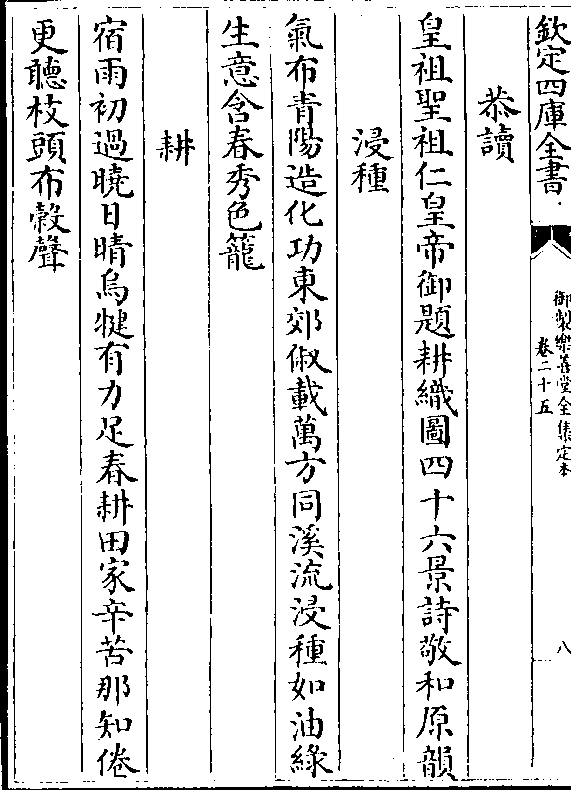 欽定四庫全書
御製樂善堂全集定本
卷二十五
八
恭讀
皇祖聖祖仁皇帝御題耕織圖四十六景詩敬和原韻
浸種
氣布青陽造化功東郊俶載萬方同溪流浸種如油綠
生意含春秀色籠
耕
宿雨初過曉日晴烏犍有力足春耕田家辛苦那知倦
更聽枝頭布榖聲